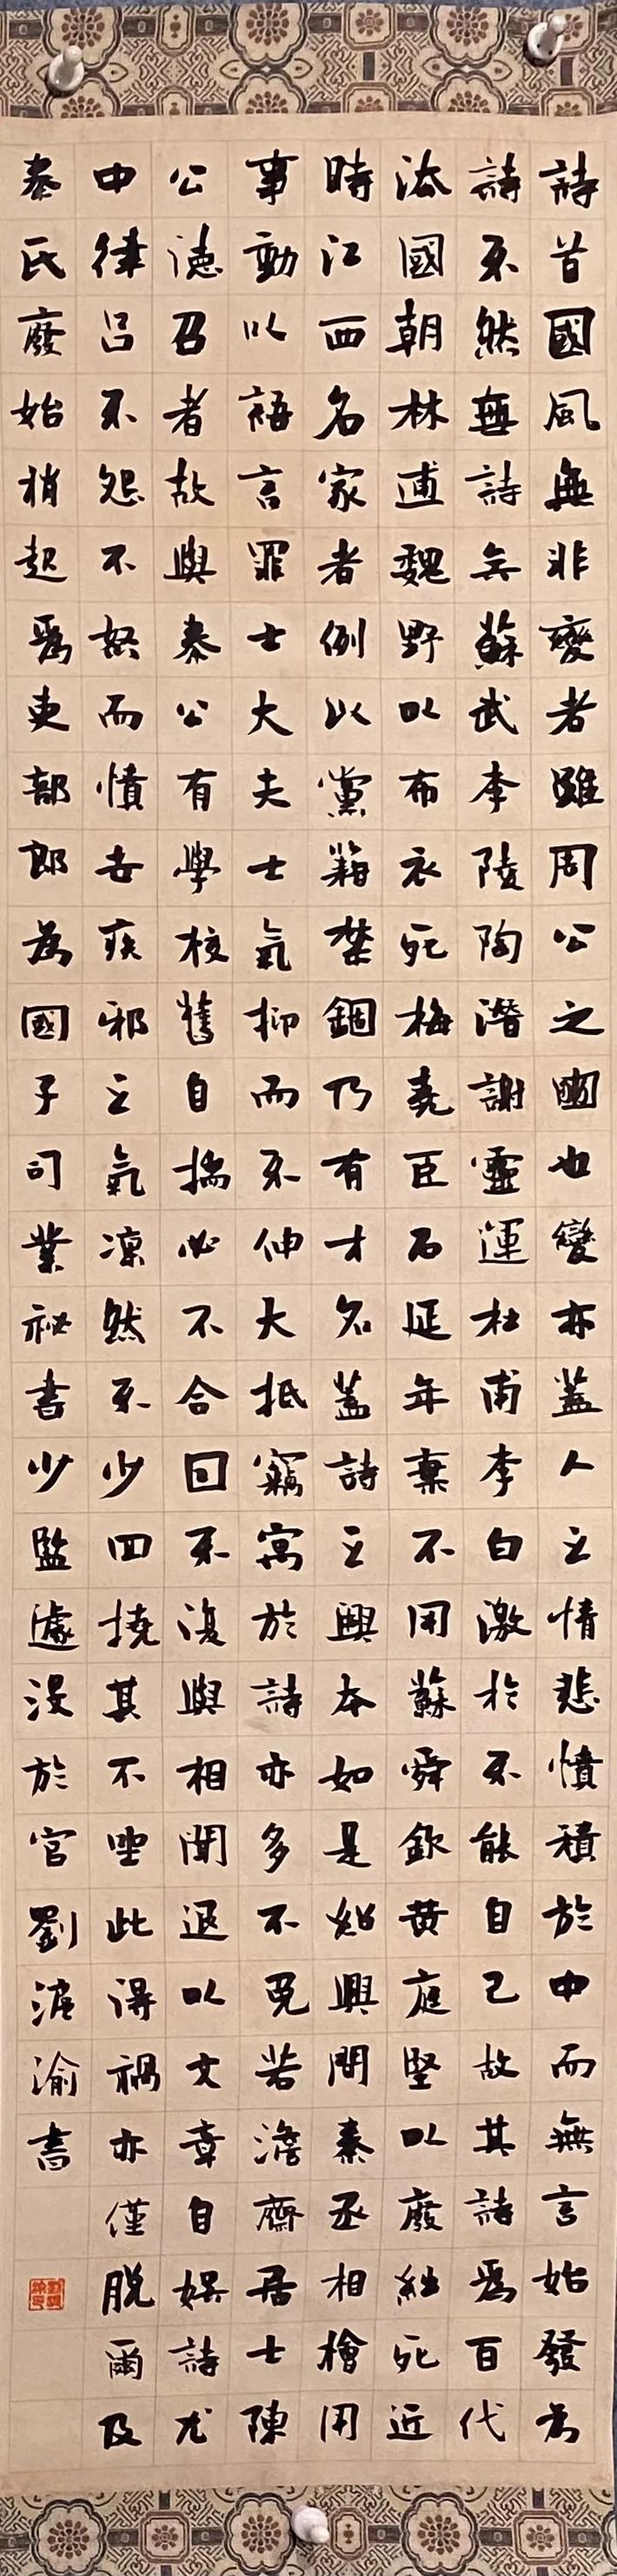 詩首國風無非變者雖周公之豳也變亦蓋人之情悲憤積於中而無言始發為
詩不然無詩矣蘇武李陵陶潛謝靈運杜甫李白激於不能自已故其詩為百代
法國朝林逋魏野以布衣死梅堯臣石延年棄不用蘇舜欽黃庭堅以廢絀死近
時江西名家者例以黨籍禁錮乃有才名蓋詩之興本如是紹興間秦丞相檜用
事動以語言罪士大夫士氣抑而不伸大抵竊寓於詩亦多不免若澹齋居士陳
公德召者故與秦公有學校舊自揣必不合因不復與相聞退以文章自娛詩尤
中律呂不怨不怒而憤世疾邪之氣凜然不少回撓其不坐此得禍亦僅脫爾及
秦氏廢始稍起為吏部郎為國子司業祕書少監遽沒於官劉滬渝書